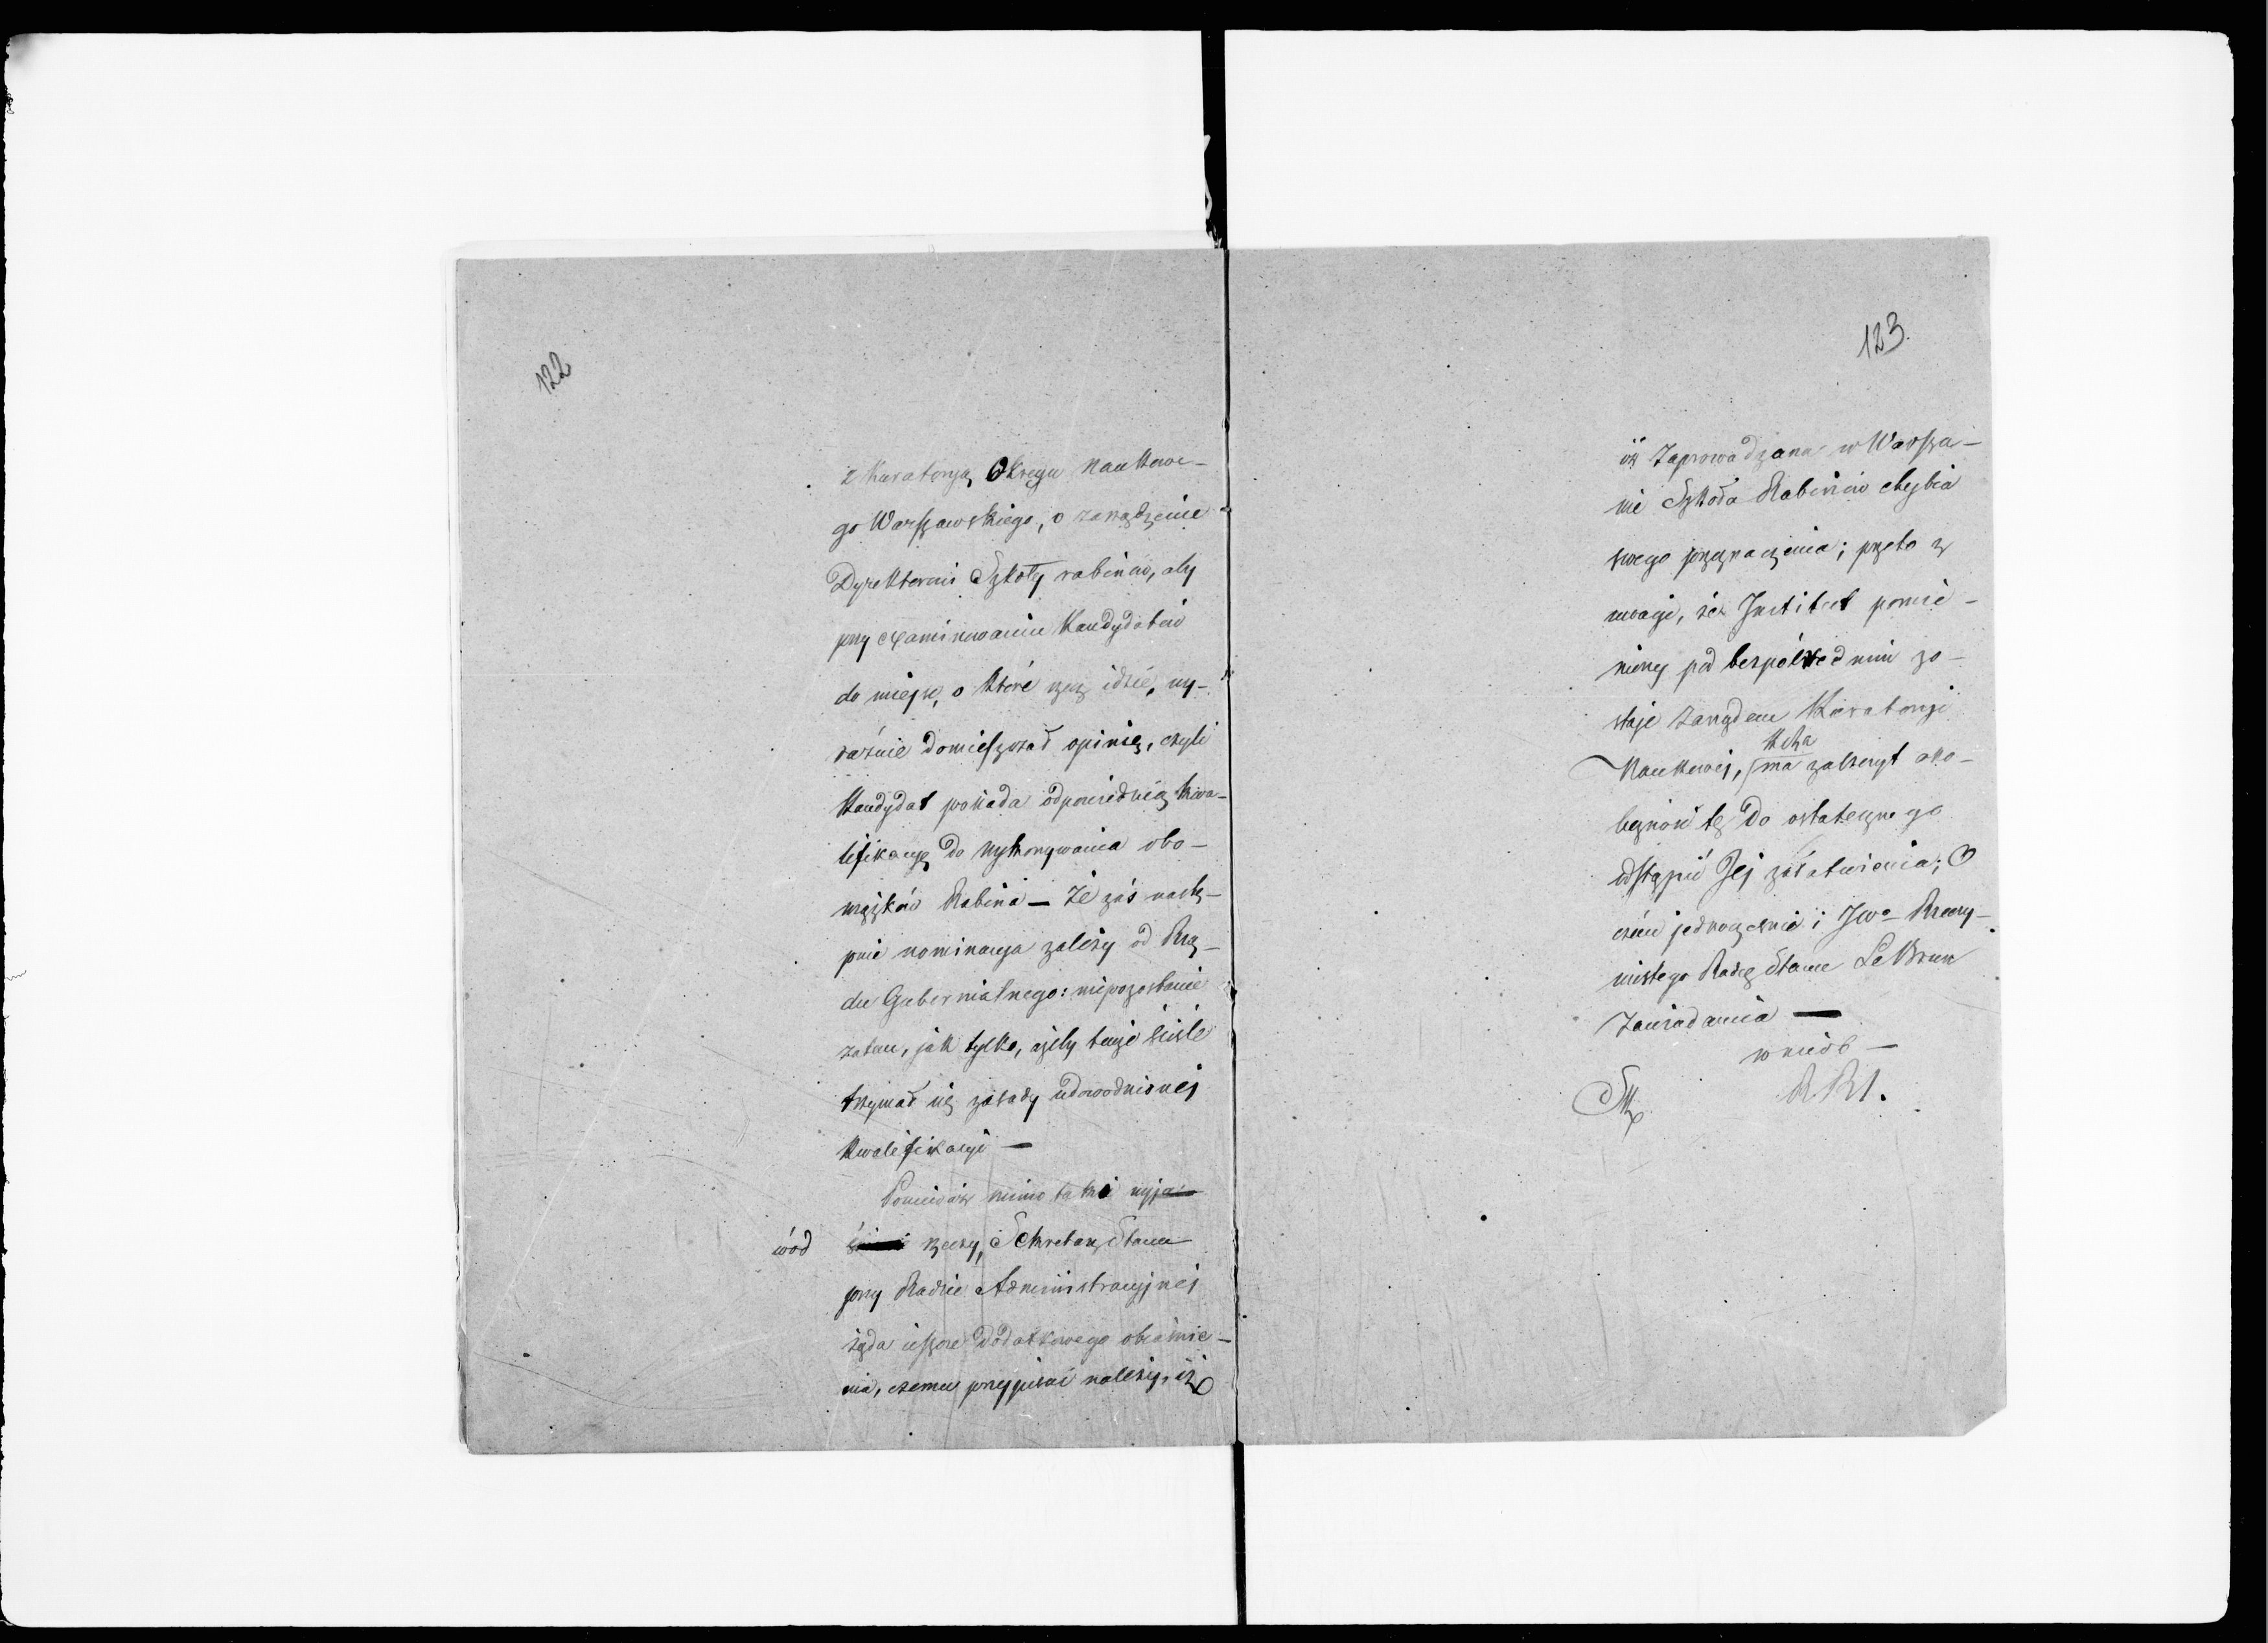 122
z Kuratorją Okręgu Naukowe-
go Warszawskiego, o zarządzenie
Dyrektorowi Szkoły rabinów, aby
przy examinowaniu Kandydatów
do miejsc, o które rzecz idzie, wy-
raźnie domieszczał opinię, czyli
Kandydat posiada odpowiednią kwa-
lifikacyę do wykonywania obo-
wiązków Rabina — Że zaś nastę-
pnie nominacya zależy od Rzą-
du Gubernialnego: niepozostanie
zatem, jak tylko, ażeby tenże ściśle
trzymał się zasady udowodnionej
Kwalifikacyi —
Ponieważ mimo taki wyja-
wód rzeczy, Sekretarz Stanu
przy Radzie Administracyjnej
żąda jeszcze dodatkowego objaśnie-
nia, czemu przypisać należy, iż
123.
iż zaprowadzona w Warsza-
wie Szkoła Rabinów chybia
swego przeznaczenia; przeto z
uwagi, że Institut pomie-
niony pod bezpośrednim zo-
staje zarządem Kuratorji
Naukowej, ma zaszczyt oko-
liczność tę do ostatecznego
odstąpić Jej załatwienia; O
czém jednocześnie i JWo Rzeczy-
wistego Radcę Stanu Le Brun
zawiadamia —
w nieob —
R R I.